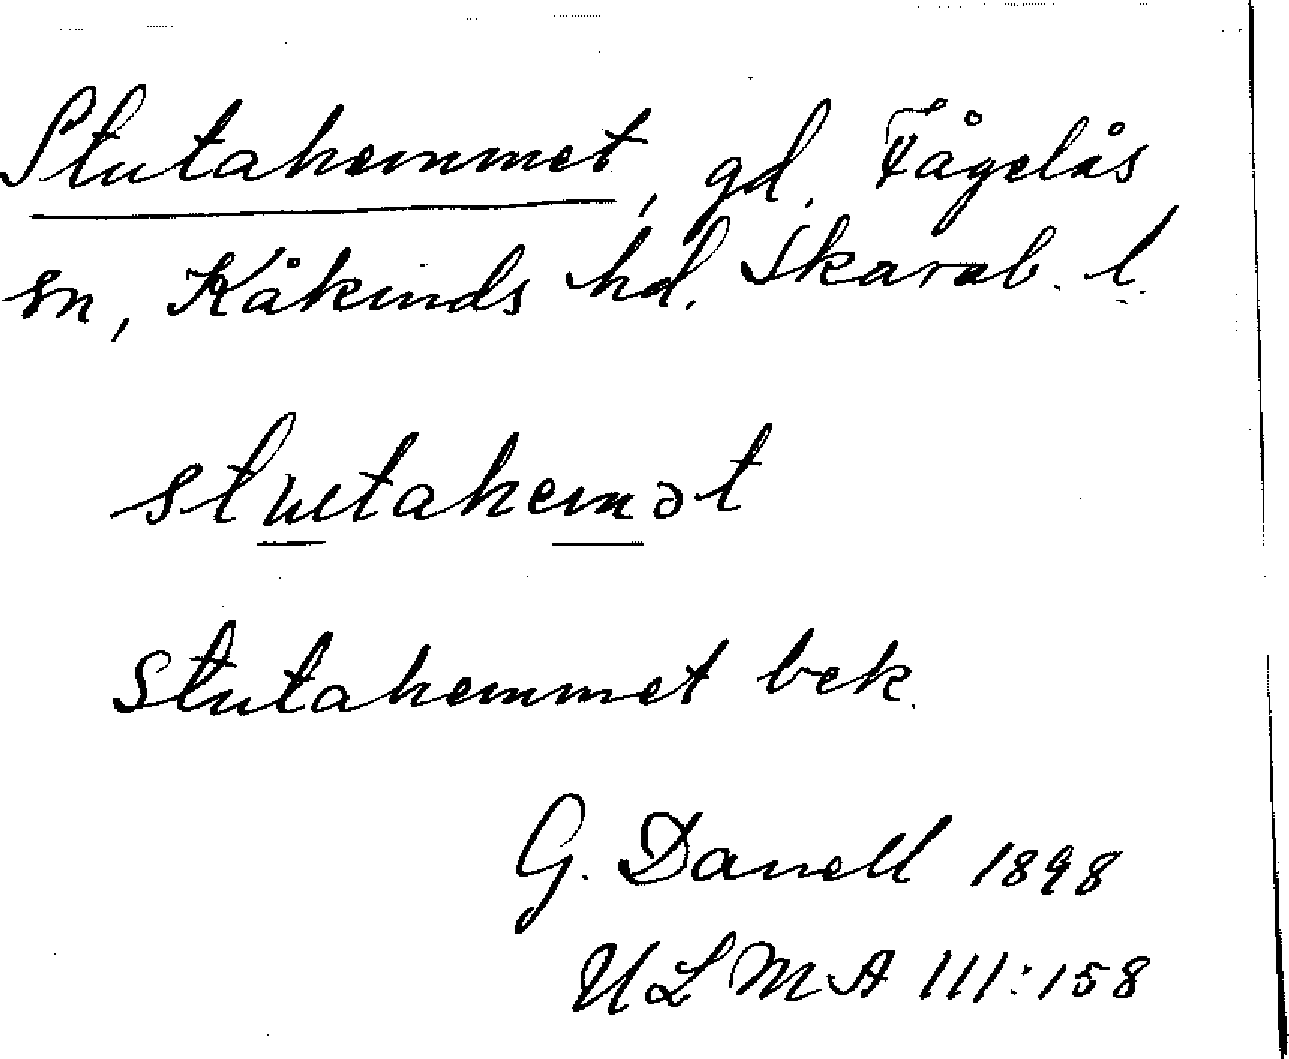 Stutahemmet, gd. Fågelås
sn, Kåkinds hd. Skarab. l.
stutahemət
Stutahemmet bek.
G. Danell 1898
ULMA III:158